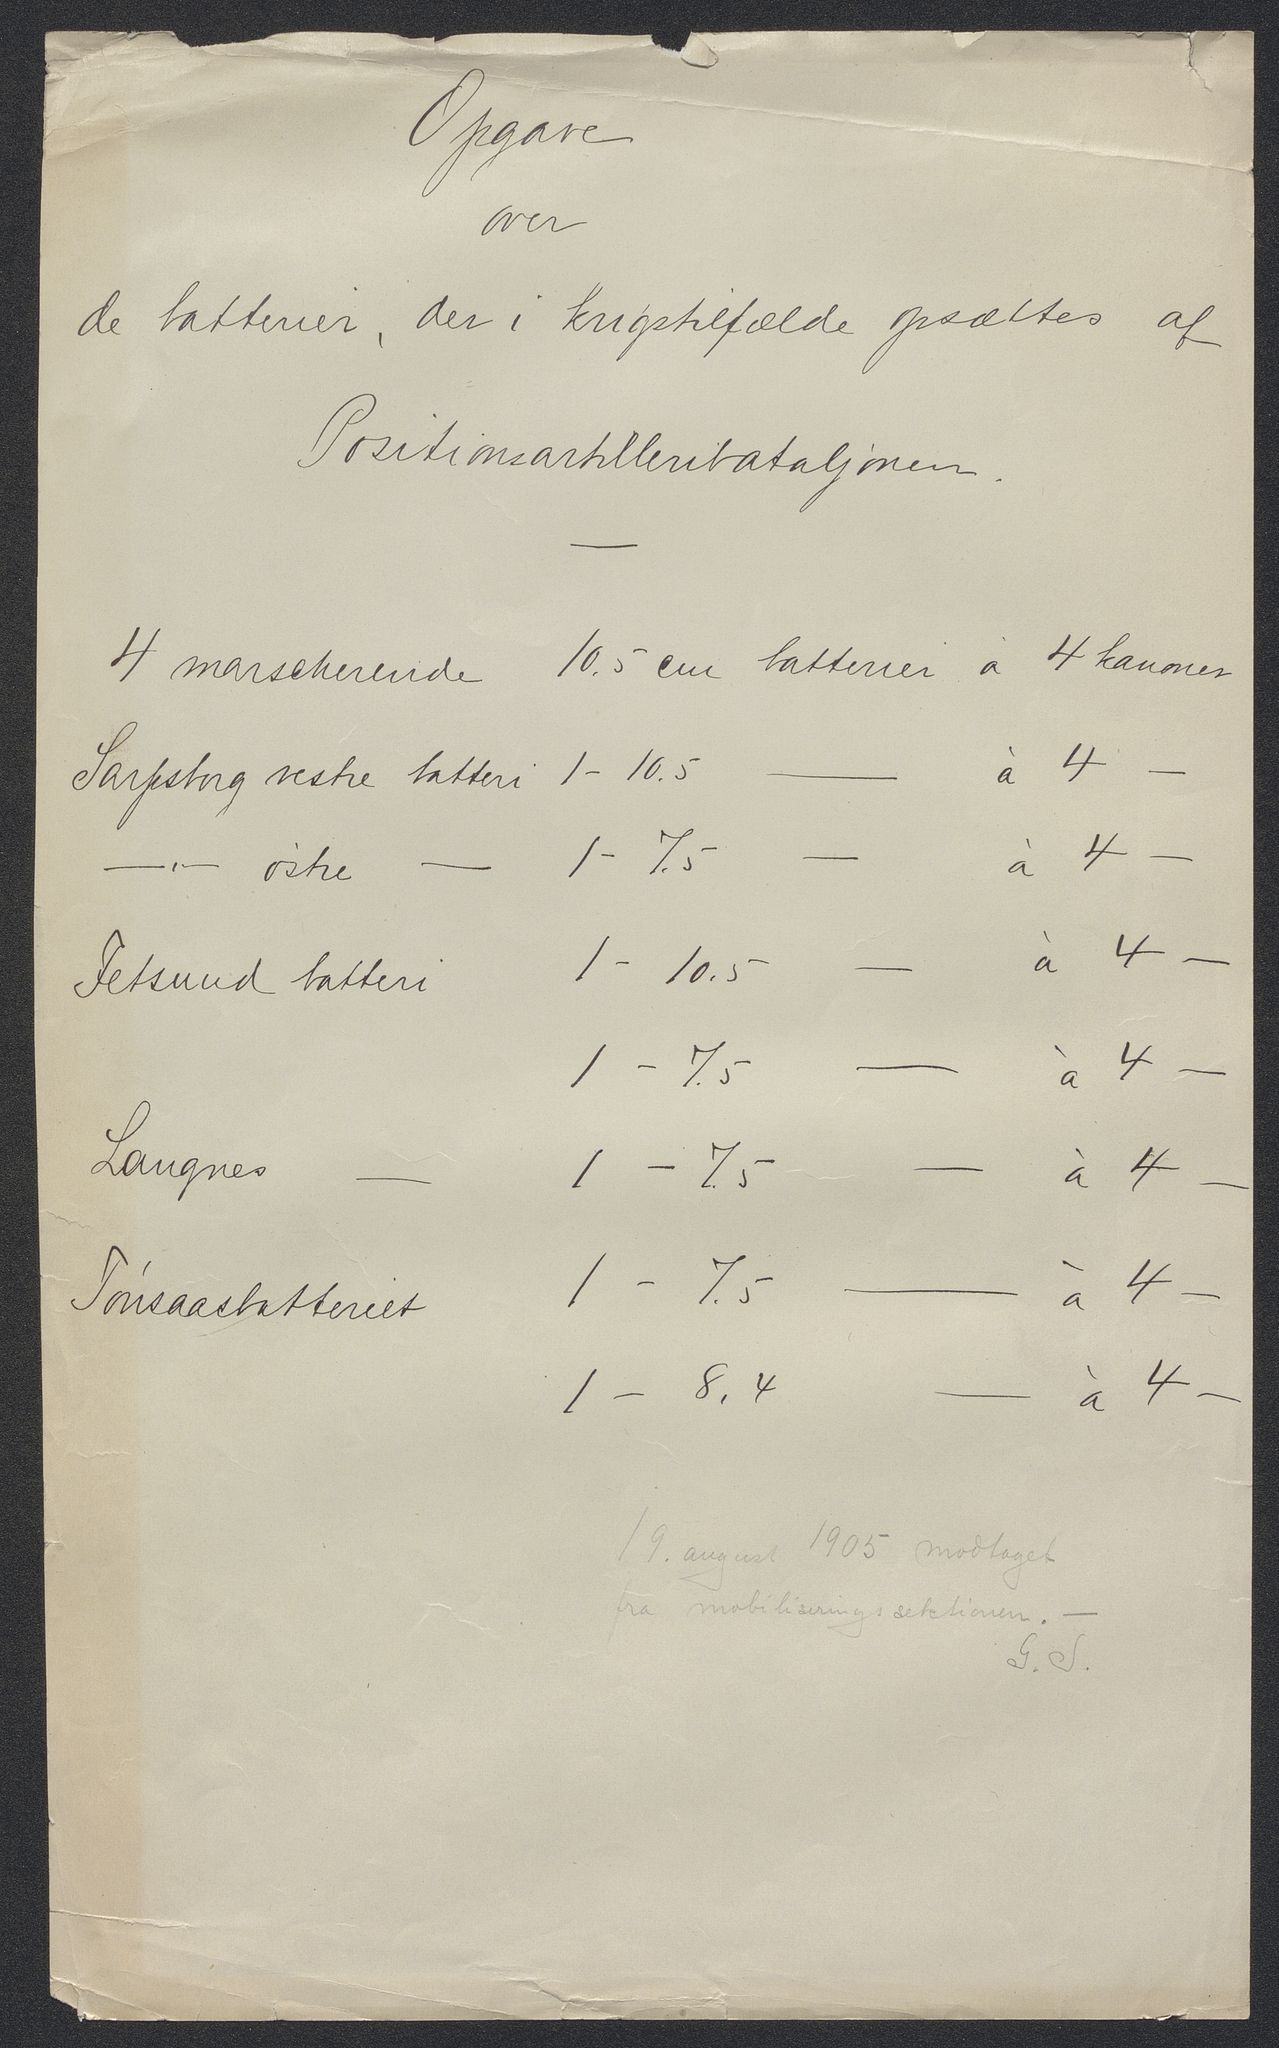 Opgave
over
de batterier, der i krigstilfælde opsættes af
Positionsartilleribataljonen.
—
4 marscherende 10.5 cm batterier à 4 kanoner
Sarpsborg vestre batteri 1 - 10.5 — à 4 —
—"— østre — 1 - 7.5 — à 4 —
Fetsund batteri 1 - 10.5 — à 4 —
1 - 7.5 — à 4 —
Langnes — 1 - 7.5 — à 4 —
Tonsaasbatteriet 1 - 7.5 — à 4 —
1 - 8.4 — à 4 —
19. august 1905 modtaget
fra mobiliseringssektionen. —
G. S.